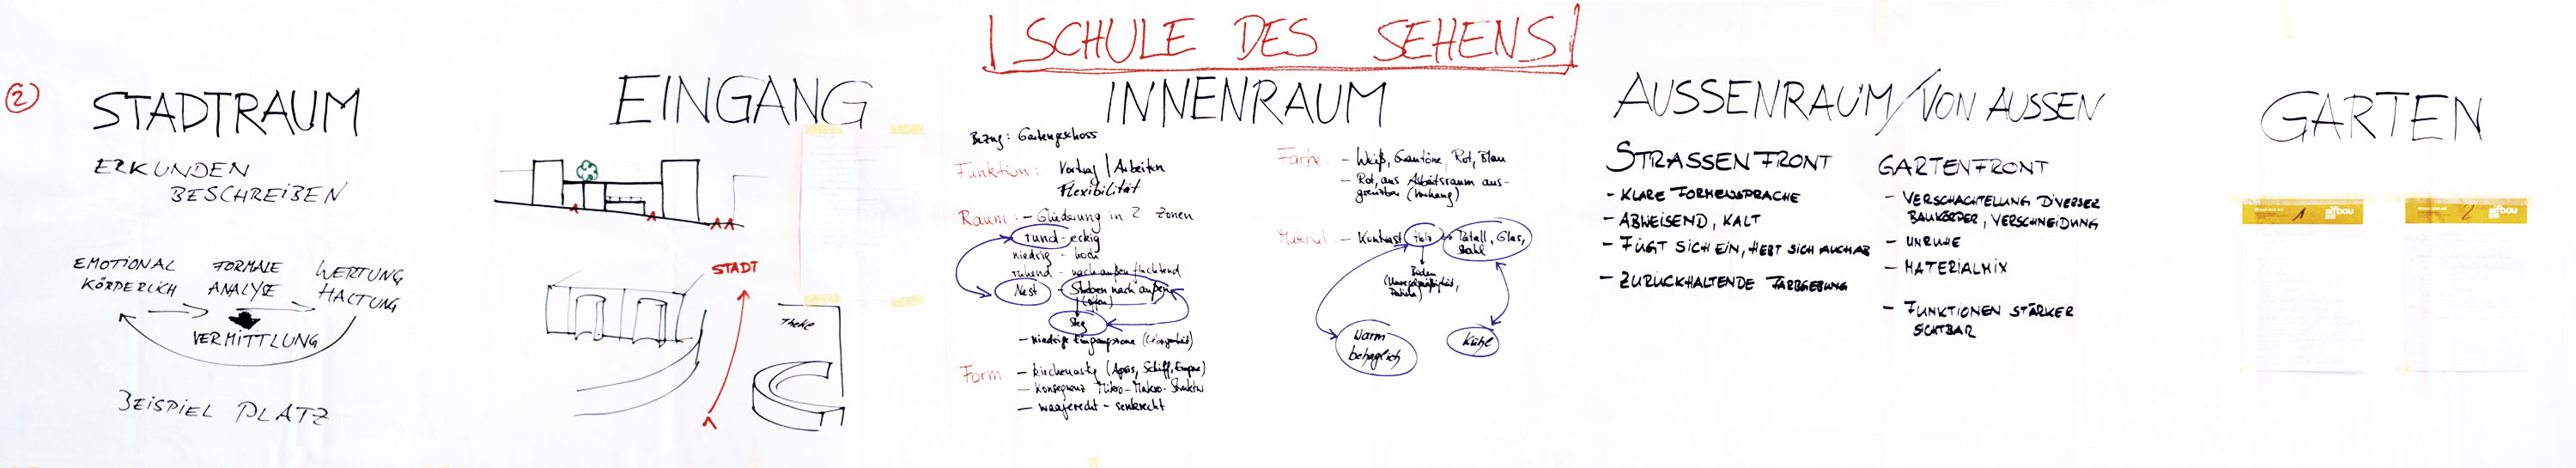 SCHULE DES SEHENS
2
STADTRAUM
ERKUNDEN
BESCHREIBEN
EMOTIONAL
KÖRPERLICH
FORMALE
ANALYSE
WERTUNG
HALTUNG
VERMITTLUNG
BEISPIEL PLATZ
EINGANG
STADT
Theke
INNENRAUM
Bezug: Gartengeschoss
Funktion: Vortrag / Arbeiten
Flexibilität
Raum: - Gliederung in 2 Zonen
rund - eckig
niedrig - hoch
ruhend - nach außen fluchtend
Nest - Streben nach außen
(offen)
Steg
- niedrige Eingangszone
Form: - kirchenartig (Apsis, Schiff, Empore)
- Konsequenz Mikro-Makro-Struktur
- waagerecht - senkrecht
Farbe: - Weiß, Grautöne, Rot, Blau
- Rot, aus Arbeitsraum aus-
grenzbar (Vorhang)
Material: - Kontrast Holz Metall, Glas,
Stahl
Boden
(Unregelmäßigkeit,
Warm
behaglich
Kühl
AUSSENRAUM/VON AUSSEN
STRASSENFRONT
- KLARE FORMENSPRACHE
- ABWEISEND, KALT
- FÜGT SICH EIN, HEBT SICH AUCH AB
- ZURÜCKHALTENDE FARBGEBUNG
GARTENFRONT
- VERSCHACHTELUNG DIVERSER
BAUKÖRPER, VERSCHNEIDUNG
- UNRUHE
- MATERIALMIX
- FUNKTIONEN STÄRKER
SICHTBAR
GARTEN
1
2